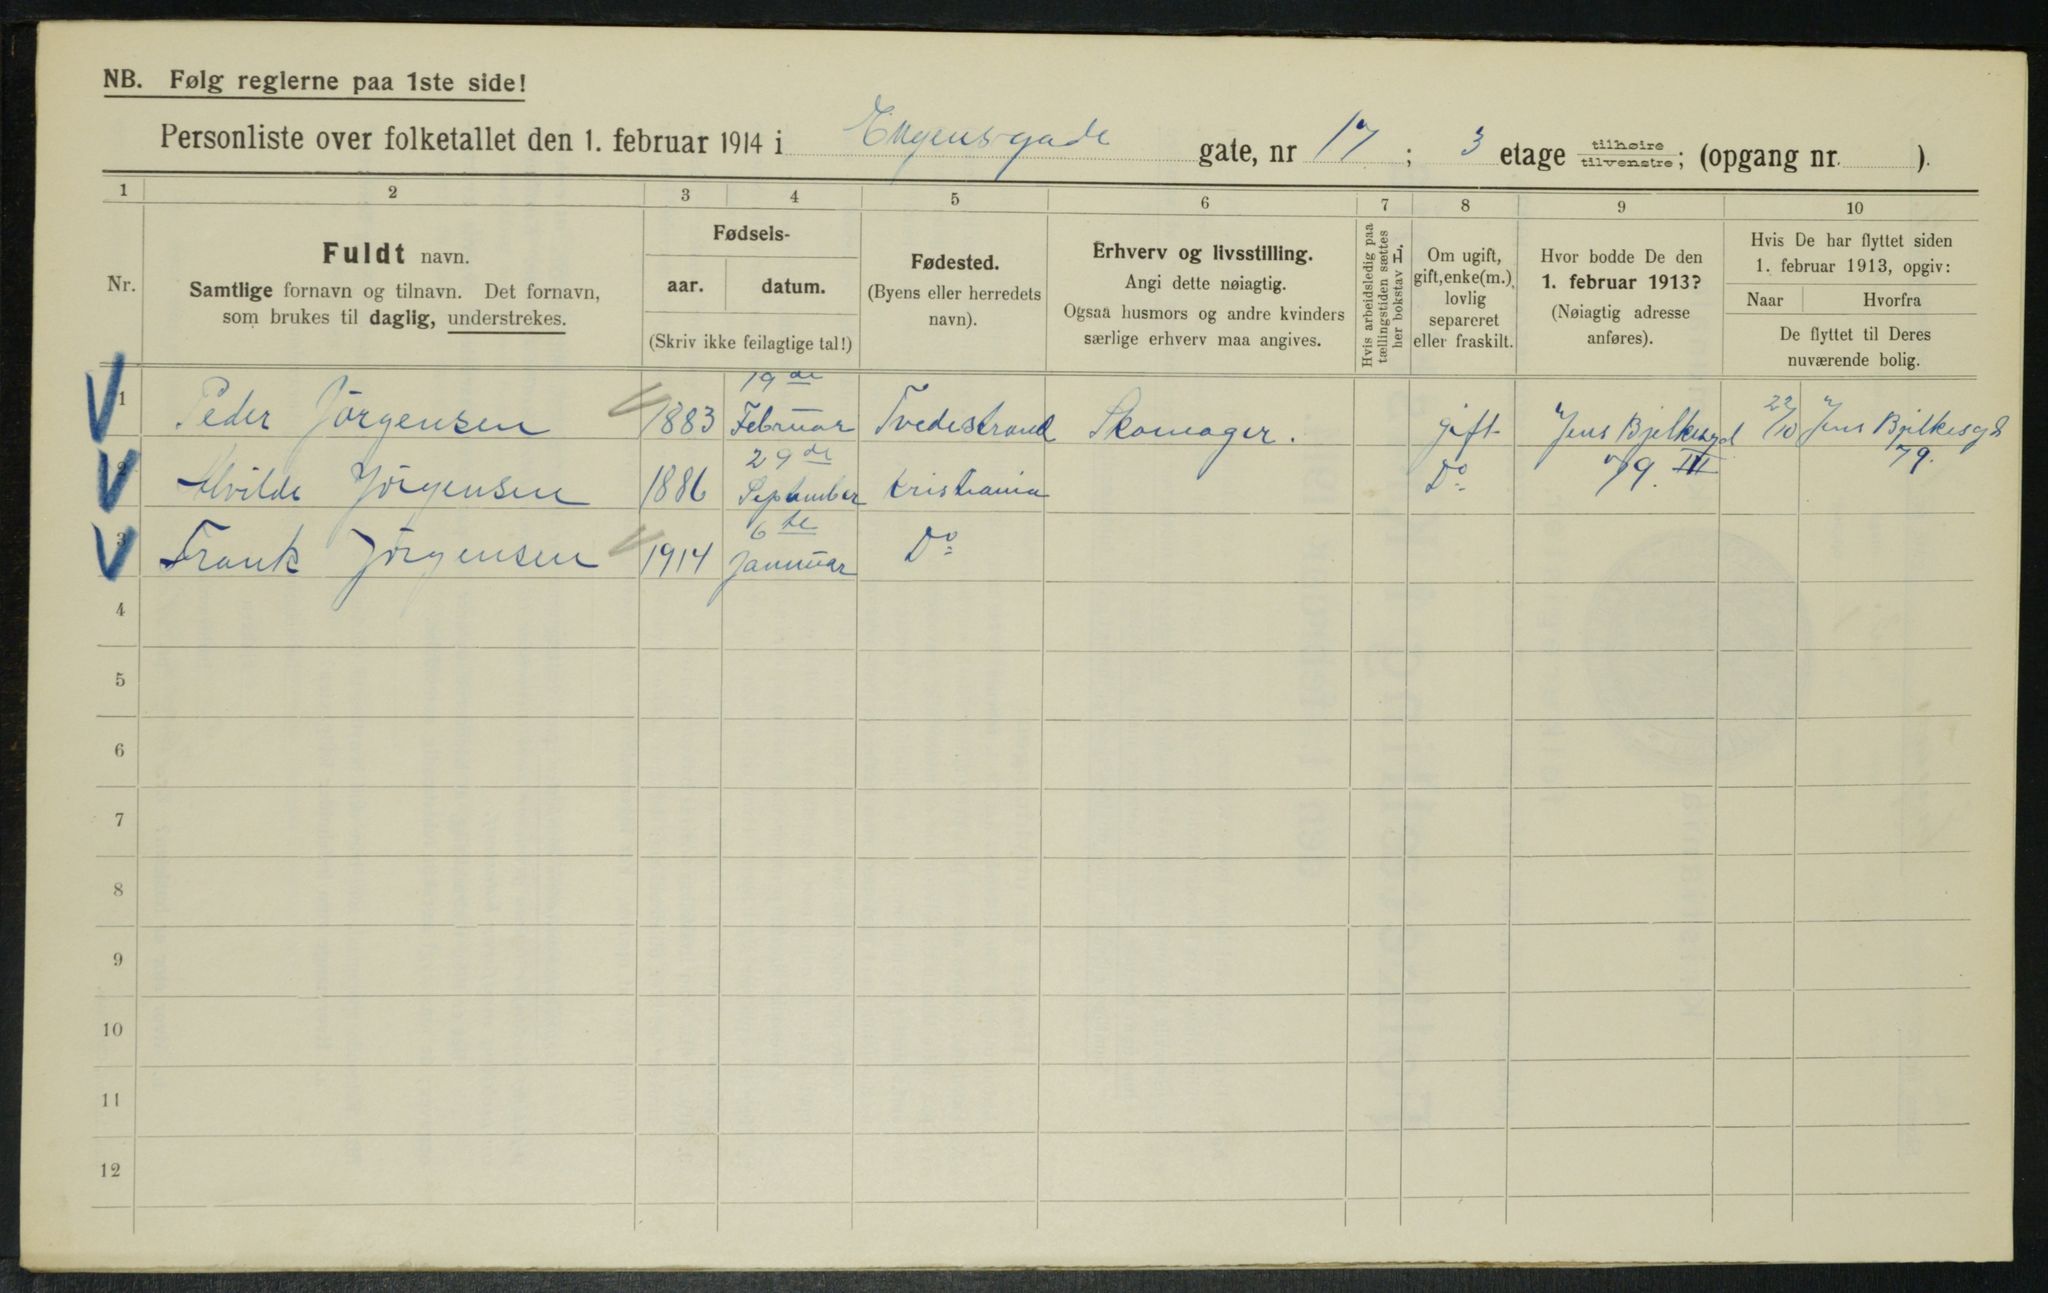 NB. Følg reglerne paa 1ste side!
Personliste over folketallet den 1. februar 1914 i Eugensgade gate, nr 17 ; 3 etage tilhøire tilvenstre; (opgang nr. ).
1 2 3 4 5 6 7 8 9 10
Nr.
Fuldt navn.
Samtlige fornavn og tilnavn. Det fornavn,
som brukes til daglig, understrekes.
Fødsels-
aar. datum.
(Skriv ikke feilagtige tal!)
Fødested.
(Byens eller herredets
navn).
Erhverv og livsstilling.
Angi dette nøiagtig.
Ogsaa husmors og andre kvinders
særlige erhverv maa angives.
Hvis arbeidsledig paa
tællingstiden sættes
her bokstav L.
Om ugift,
gift, enke(m.),
lovlig
separeret
eller fraskilt.
Hvor bodde De den
1. februar 1913?
(Nøiagtig adresse
anføres).
Hvis De har flyttet siden
1. februar 1913, opgiv:
Naar Hvorfra
De flyttet til Deres
nuværende bolig.
1 Peder Jörgensen 1883 19de Februar Tvedestrand Skomager. gift Jens Bjelkesgd 22/10 Jens Bjelkesgd
2 Alvilde Jörgensen 1886 29de September Kristiania Do 79. III 79.
3 Frank Jörgensen 1914 6te Januar Do
4
5
6
7
8
9
10
11
12